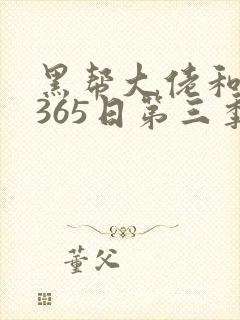 黑帮大佬和
365日第三季
董父